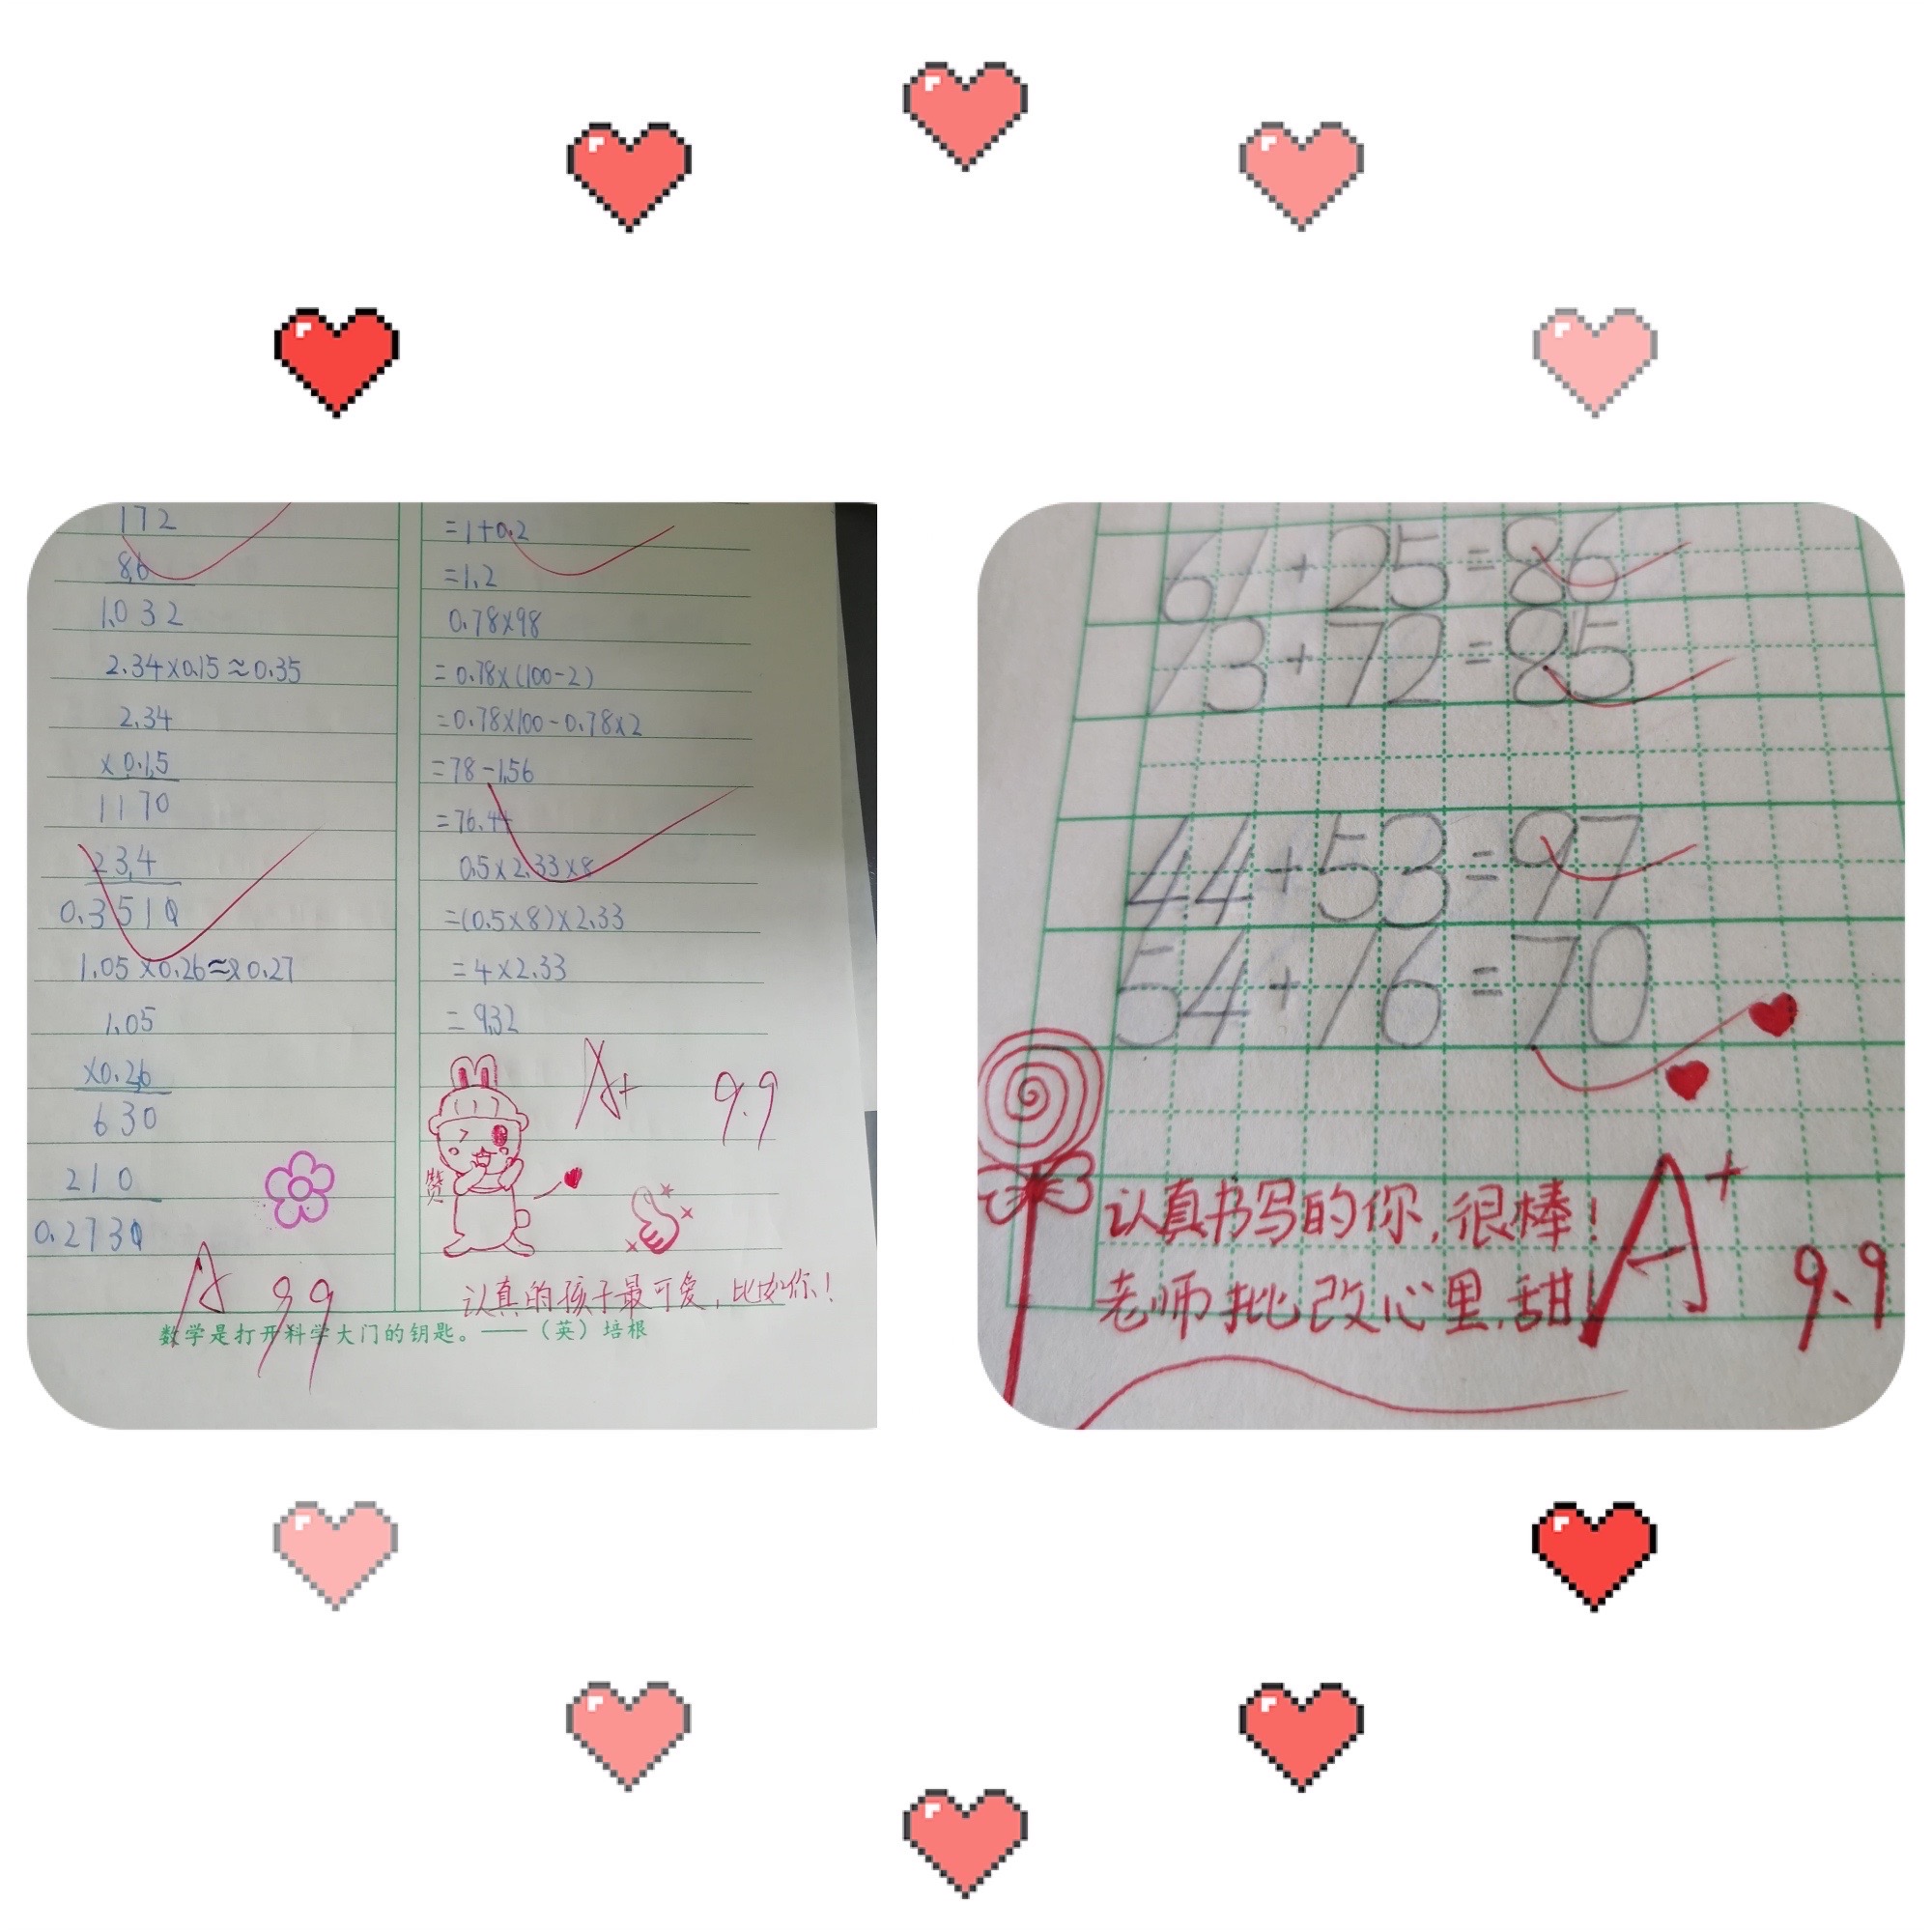 172
86
1.032
2.34×0.15≈0.35
2.34
×0.15
1170
234
0.3510
1.05×0.26≈0.27
1.05
×0.26
630
210
0.2730
A 9.9
=1+0.2
=1.2
0.78×98
=0.78×(100-2)
=0.78×100-0.78×2
=78-1.56
=76.44
0.5×2.33×8
=(0.5×8)×2.33
=4×2.33
=9.32
A+ 9.9
赞
认真的孩子最可爱，比如你！
数学是打开科学大门的钥匙。——（英）培根
61+25=86
13+72=85
44+53=97
54+16=70
认真书写的你，很棒！
老师批改心里甜！
A+ 9.9